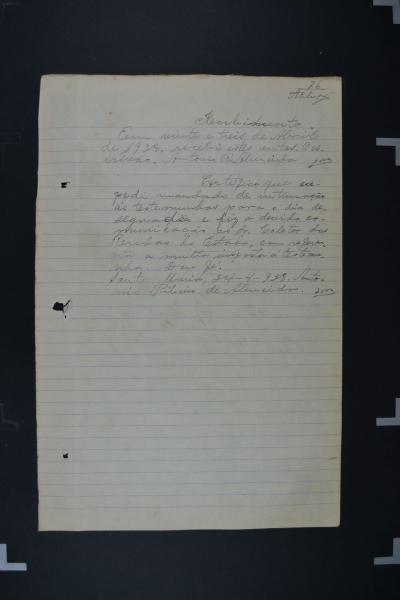 76
Recebimento
Em vinte e tres de Abril
de 1928, recebi estes autos. O es-
crivão, Antonio R. Almeida 200
Certifico que ex-
pedi mandado de intimação
ás testemunhas para o dia de
segnado e fiz a devida co-
municação ao Sr. Coletor das
Rendas do Estado, com referen-
cia a multa imposta a testemu-
nha. Dou fé.
Santa Maria, 24-4-928. Anto-
nio Ribeiro de Almeida. 200